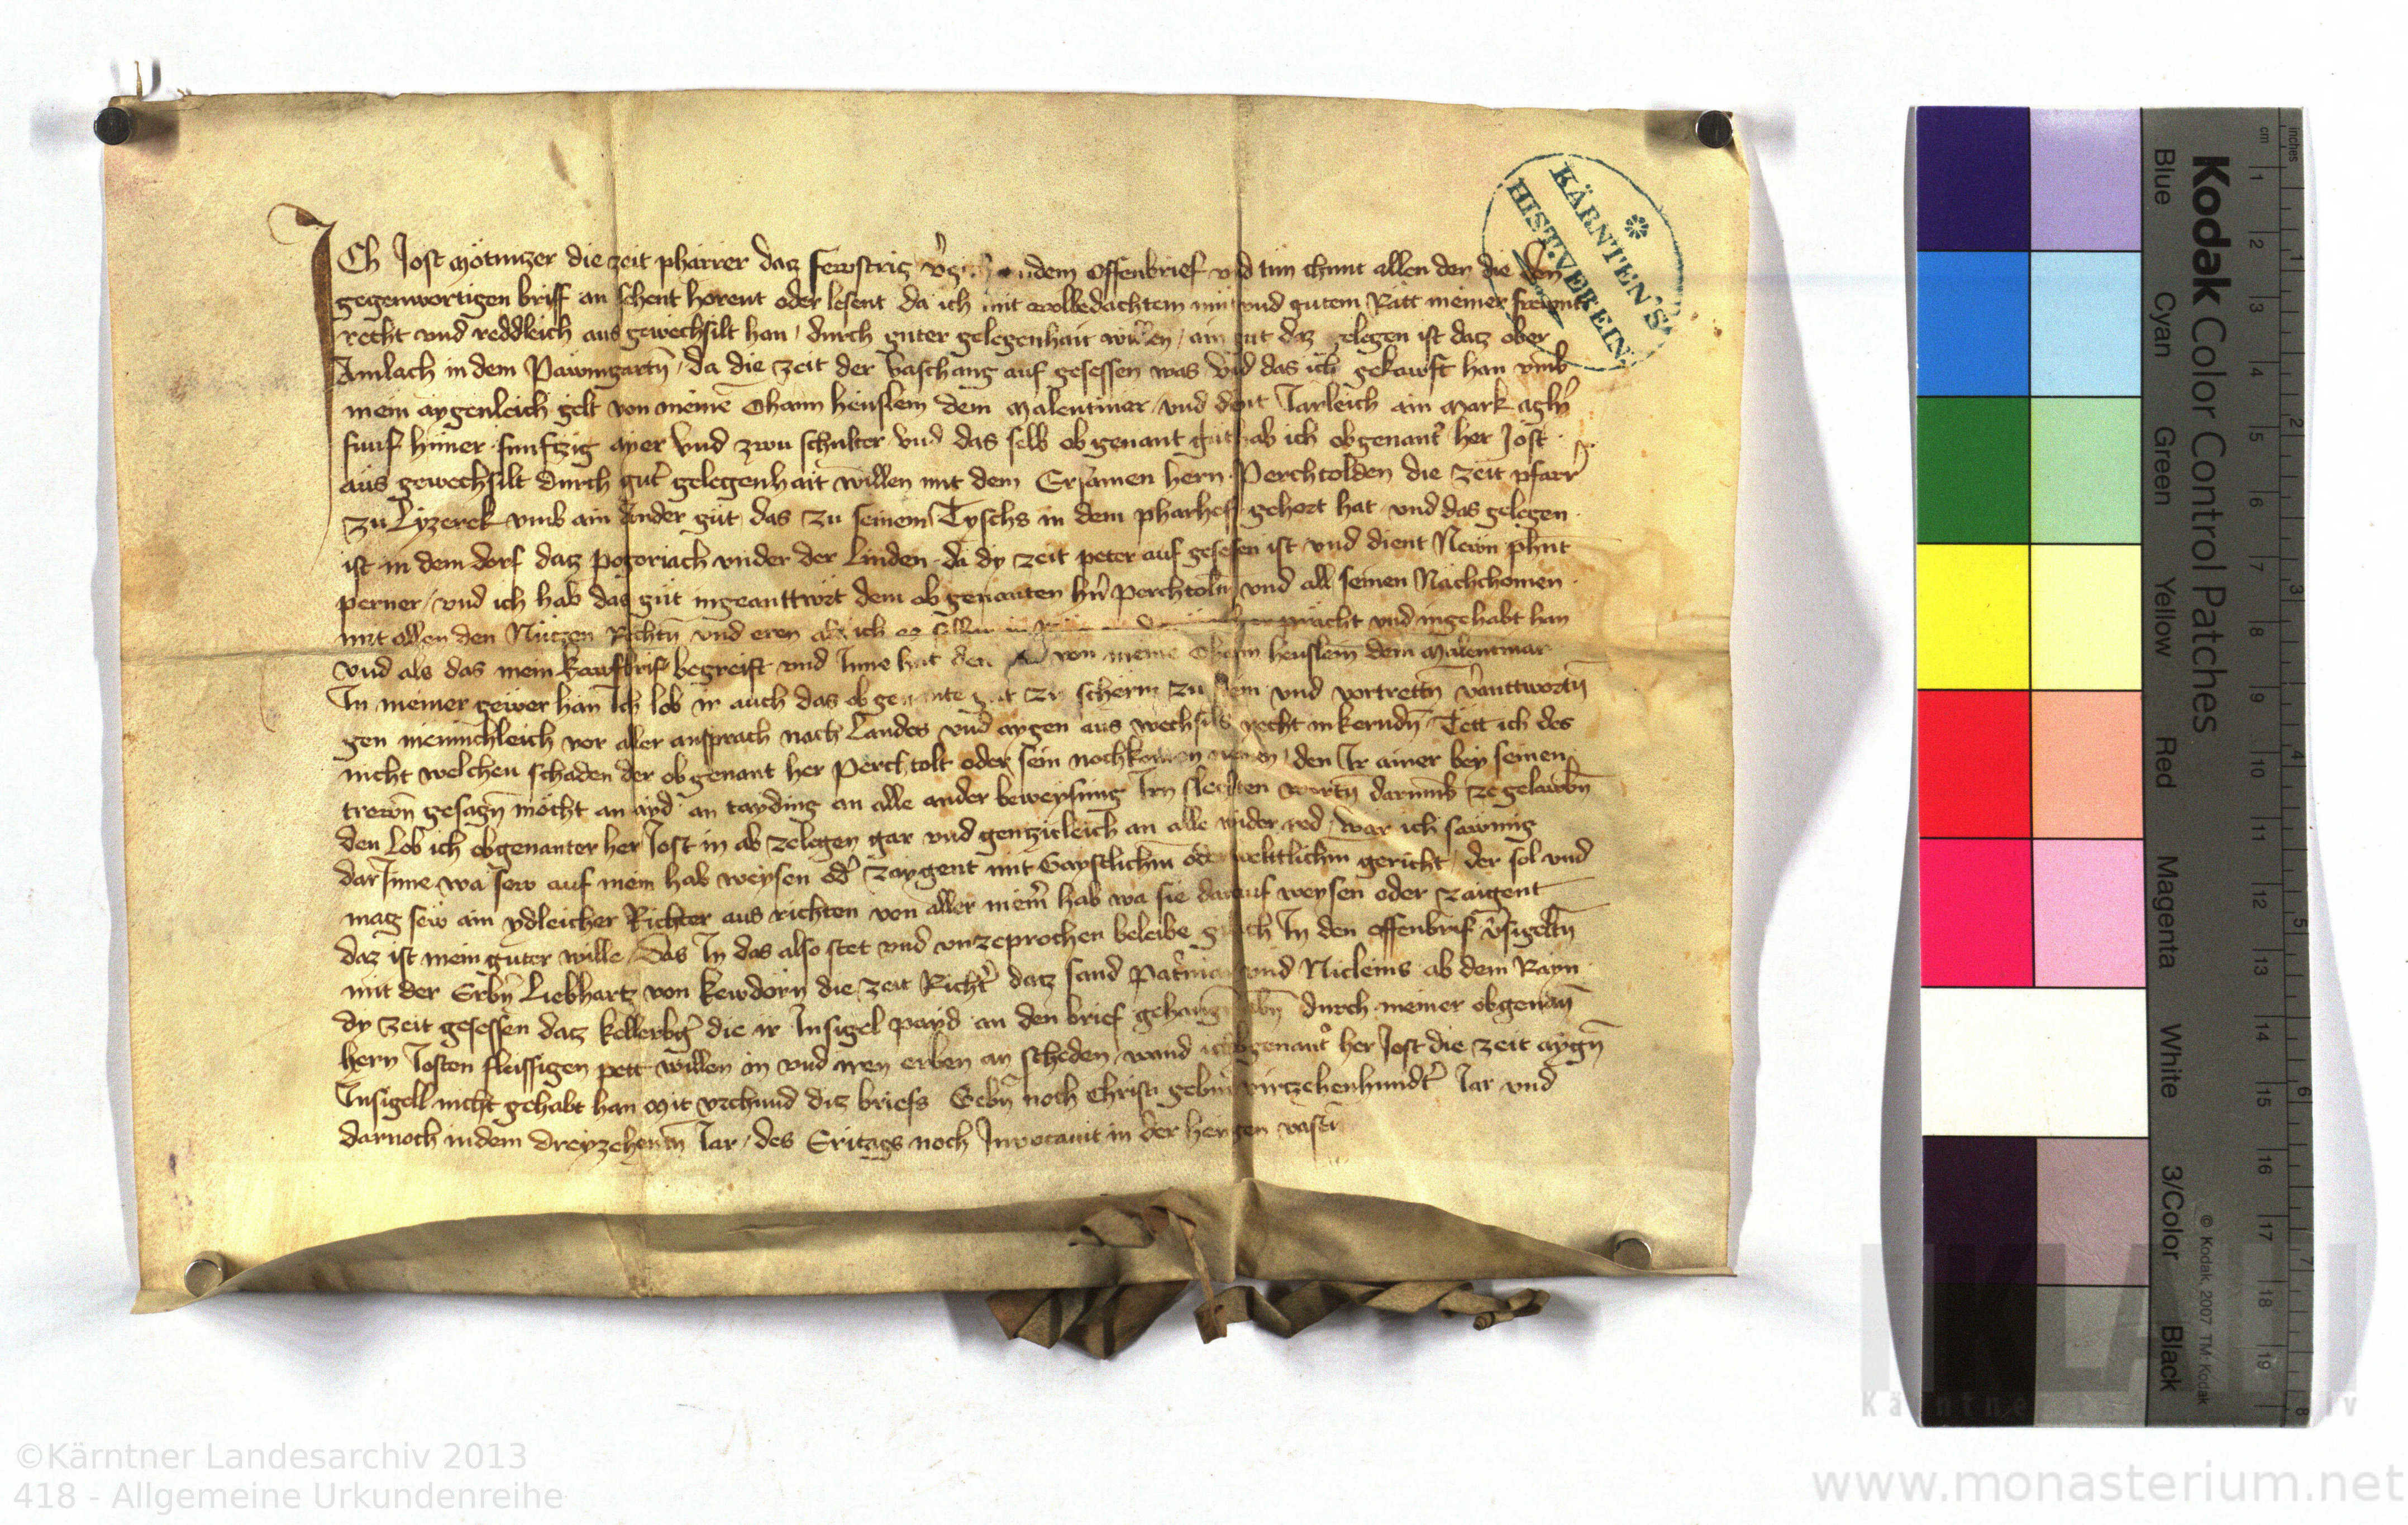 Ich Jost Mötnitzer die zeit pharrer datz fewstricz an dem offenbrief vnd tun chunt allen den die den
gegenwortigen briff an sehent horent oder lesent da ich mit wolbedachtem mut vnd gutem Rátt meiner frewnt
recht vnd reddleich aus gewechsilt han / durch guter gelegenhait willen / ain gut daz gelegen ist datz ober
Amlach in dem Pawmgartn̄ / da die zeit der Vaschang auf gesessen was vnd das ich gekawft han vmb
mein aygenleich gelt von meinē Ohaim heuslein dem Malentiner / vnd dint Jarleich ain mark aglȳ
funf huner funfczig ayer vnd zwu schulter vnd das selb obgenant gut hab ich obgenant̄ her Jost
aus gewechsilt durch gut̄ gelegenhait willen mit dem Ersamen hern Perchtolden die zeit pfarr̄
zu Lyzerek vmb ain ander gut das zu seinem Tyschs in dem pharhoff gehort hat vnd das gelegen
ist in dem dorf datz pogoriach vnder der Linden da dy zeit peter auf gesesen ist vnd dient Newn phnt
perner / vnd ich hab das gut ingeanttwört dem obgenanten hr̄n perchtoln̄ vnd all seinen Nachchomen
mit allen den Nutzen Rechtn̄ vnd eren als ich es pracht vnd ingehabt han
vnd als das mein kawfbrif begreift vnd Inne hat den von meinē Ohaim heuslein dem Malentinar
In meiner gewer han Ich lob ir auch das obgenante gut zu scherm zu sein vnd vortrettn̄ v̄anttwortn̄
gen meinichleich vor aller ansprach nach Landes vnd aygen aus wechsils recht in kerndn̄ Tett ich des
nicht welchen schaden der obgenant her Perchtolt oder sein nochkomen den Ir ainer bey seinen
trewn̄ gesagn̄ möcht an ayd an tayding an alle ander beweysung Irn slechten wortn̄ darumb zegelawbn̄
den Lob ich obgenanter her Jost in ab zelegen gar vnd genczleich an alle wider red / war ich sawmig
dar Inne wa sew auf mein hab weysen od̄ zaygent mit Gaystlichm̄ oder welttlichm̄ gericht / der sol vnd
mag sew ain ydleicher Richter aus richten von aller meīr hab wa sie darauf weysen oder zaigent
daz ist mein guter wille / Das In das also stet vnd vnzeprochen beleibe In den offenbrif v̄sigeltn̄
mit der Erbn̄ Liebhartz von kewdorn die zeit Richt̄ datz sand vnd Nicleins ab dem Rayn
dy zeit gesessen datz kellerbḡ die ir Insigel payd an den brief gehangen habn̄ durch meiner obgenan̄
hern Josten fleissigen pett willen in vnd iren erben an scheden / wand ich obgenant̄ her Jost die zeit aygn̄
Insigell nicht gehabt han Mit vrchund ditz briefs Gebn̄ noch Christi geburd virtzehenhundt̄ Jar vnd
darnoch in dem dreyzehentn̄ Jar / des Eritags noch Inuocauit in der heiligen vastn̄
KÄRNTEN'S
HIST. VEREIN
Kodak Color Control Patches
Blue Cyan Green Yellow Red Magenta White 3/Color Black
© Kodak, 2007 TM: Kodak
cm 1 2 3 4 5 6 7 8 9 10 11 12 13 14 15 16 17 18 19
inches 1 2 3 4 5 6 7 8
©Kärntner Landesarchiv 2013
418 - Allgemeine Urkundenreihe
www.monasterium.net